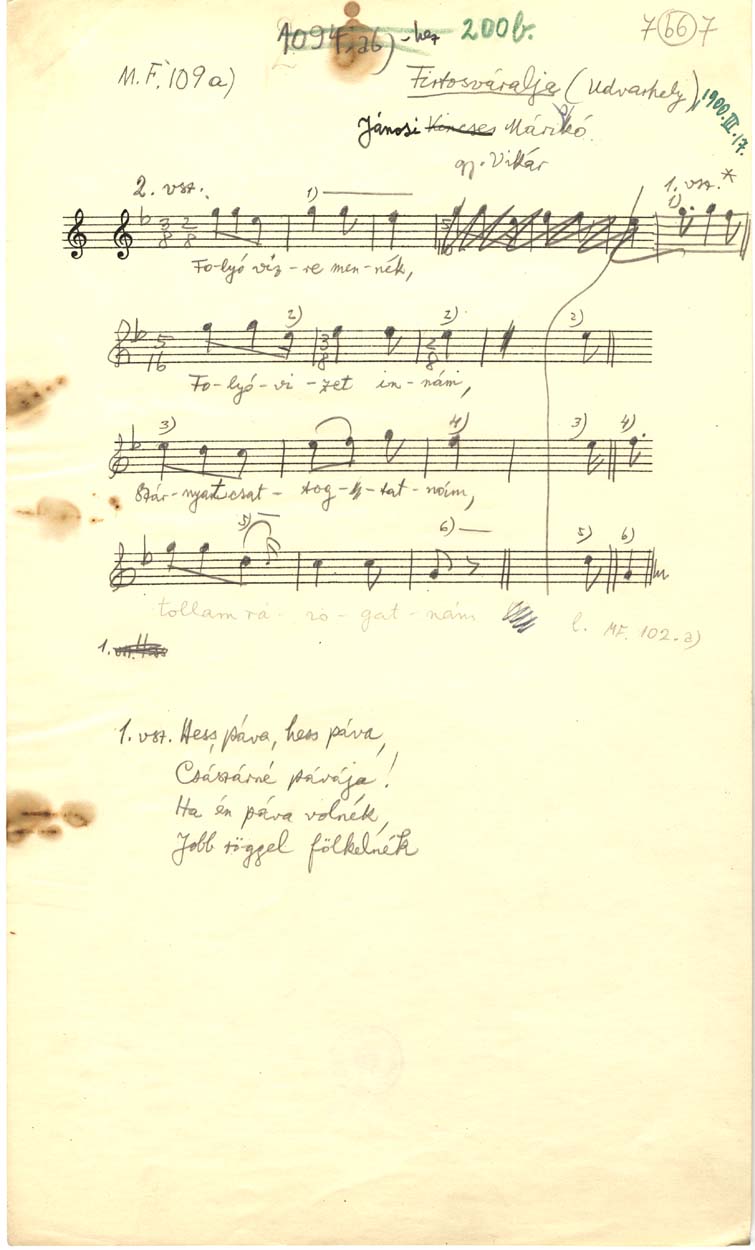 1094i, ab) -hez 200b.
7 (66) 7
M.F. 109a)
Firtosváralja (Udvarhely), 1900.III.17.
Jánosi Kincses Márikó
gy. Vikár
2. vsz. 1) 1. vsz.*
1)
3/8 2/8
Fo-lyó víz-re men-nék,
2) 2) 2)
5/16 3/8 2/8
Fo-lyó-vi-zet in-nám,
3) 4) 3) 4)
Szár-nyat csat-tog-tat-nám,
5) 6) 5) 6)
tollam rá-zo-gat-nám
l. MF. 102.a)
1.
1. vsz. Hess, páva, hess páva,
Császárné pávája!
Ha én páva volnék,
Jobb röggel fölkelnék